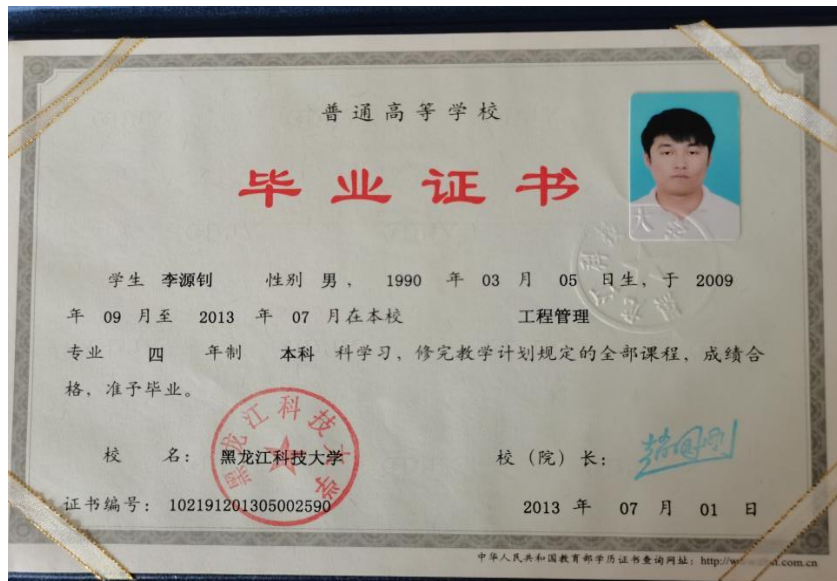 普通高等学校
毕业证书
学生 李源钊 性别 男, 1990 年 03 月 05 日生, 于 2009
年 09 月至 2013 年 07 月在本校 工程管理
专业 四 年制 本科 科学习, 修完教学计划规定的全部课程, 成绩合
格, 准予毕业。
校 名: 黑龙江科技大学 校 (院) 长:
黑龙江科技大学
证书编号: 102191201305002590 2013 年 07 月 01 日
中华人民共和国教育部学历证书查询网址: http://